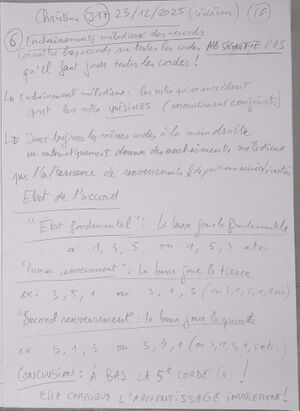 Christine J17 23/12/2025 (révision) 10
6 Enchaînements mélodieux des accords
Connaître les accords sur toutes les cordes NE SIGNIFIE PAS
qu'il faut jouer toutes les cordes !
Enchaînement mélodieux : les notes qui se succèdent
sont les notes VOISINES (mouvement conjoint)
Jouer toujours les mêmes cordes à la main droite
va automatiquement donner des enchaînements mélodieux
par l'alternance de renversements & de positions
Etat de l'accord
"État fondamental" : La basse joue la fondamentale
ex : 1, 3, 5 ou 1, 5, 3 etc..
"Premier renversement" = La basse joue la tierce
ex : 3, 5, 1 ou 3, 1, 5 (ou 3, 1, 5, 1,
"Second renversement" : La basse joue la quinte
ex : 5, 1, 3 ou 5, 3, 1 (ou 5, 1, 3, 1 etc..)
CONCLUSION : À BAS LA 5e CORDE !
ELLE COMPLIQUE L'APPRENTISSAGE INUTILEMENT !